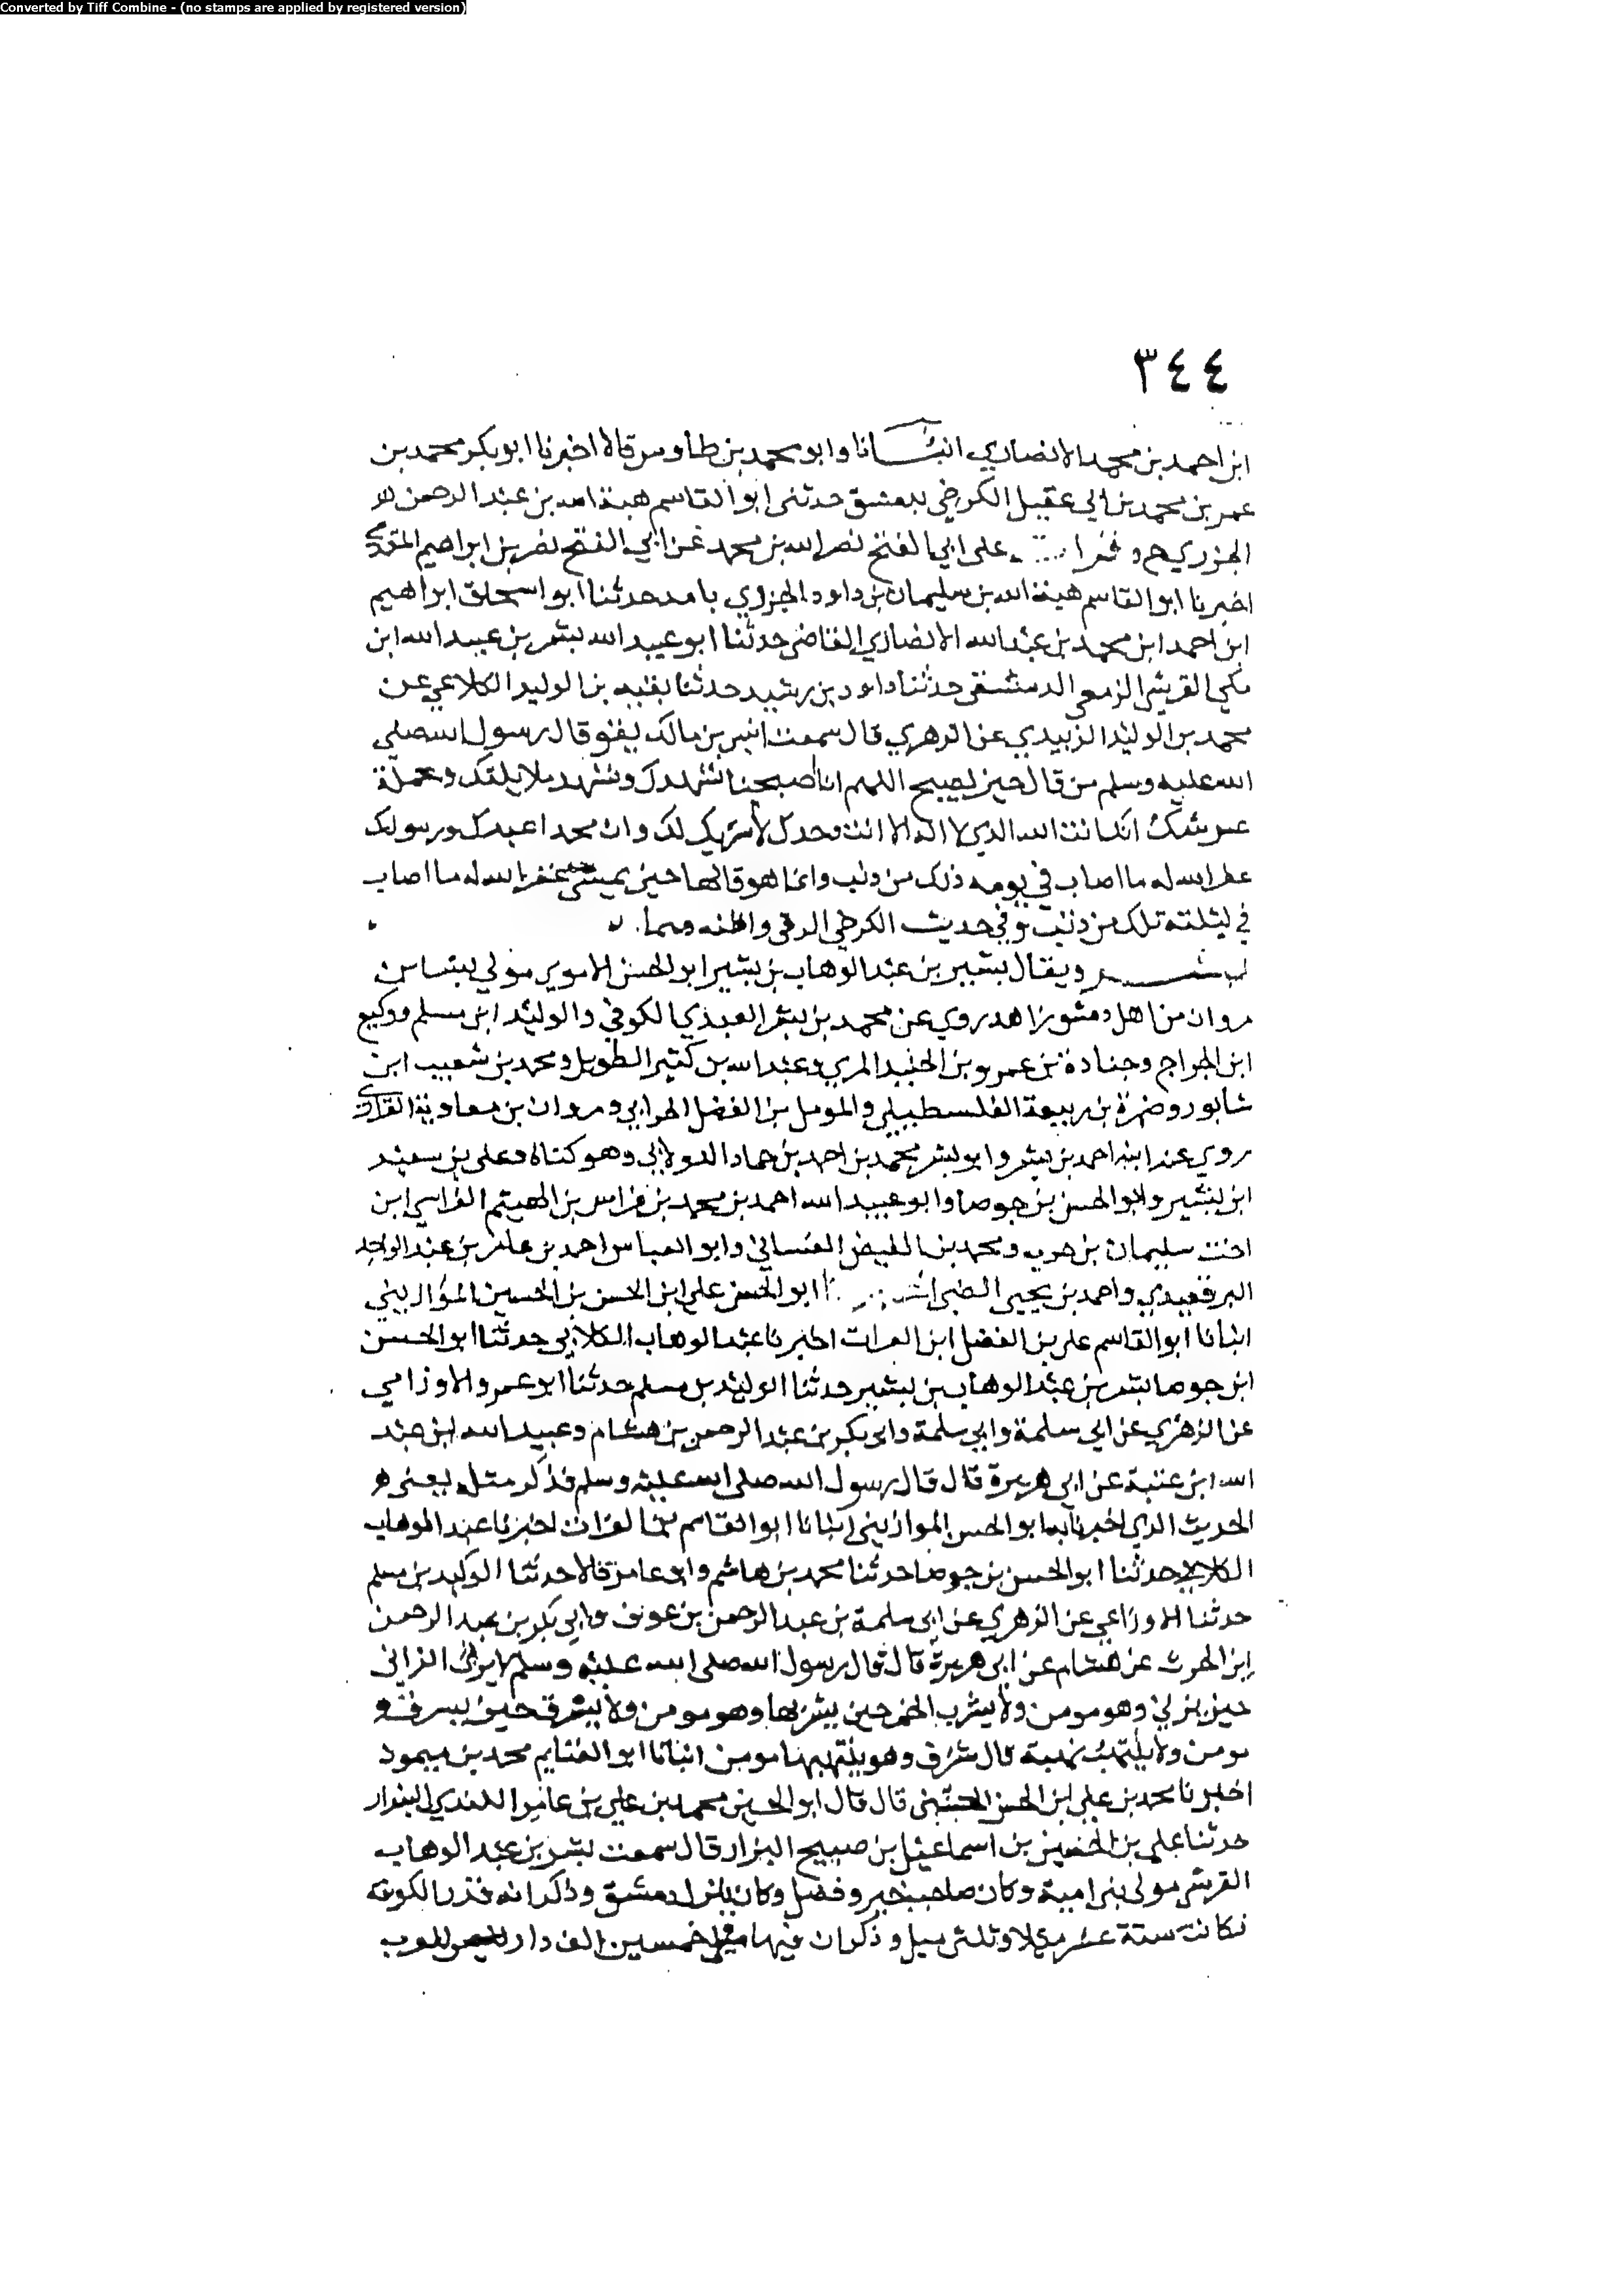 Converted by Tiff Combine - (no stamps are applied by registered version)
٣٤٤
ابن احمد بن محمد الانصاري انبانا وابو محمد بن طاوس قالا اخبرنا ابو بكر محمد بن
عمر بن محمد بن ابي عقيل الكرخي بدمشق حدثني ابو القاسم هبة الله بن عبد الرحمن
الجزري ح و على ابي الفتح نصر الله بن محمد عن ابي الفتح نصر بن ابراهيم
اخبرنا ابو القاسم هبة الله بن سليمان بن داود الجزري بامد حدثنا ابو اسحاق ابراهيم
ابن احمد ابن محمد بن عبد الله الانصاري القاضي حدثنا ابو عبيد الله بشر بن عبيد الله ابن
مكي القرشي الدمشقي حدثنا داود بن رشيد حدثنا بقيه بن الوليد الكلاعي عن
محمد بن الوليد الزبيدي عن الزهري قال سمعت انس بن مالك يقو قال رسول الله صلى
الله عليه وسلم من قال حين يصبح اللهم انا اصبحنا نشهدك ونشهد ملايكتك وحملة
عرشك انك انت الله الذي لا اله الا انت وحدك لا شريك لك وان محمدا عبدك ورسولك
غفر الله له ما اصاب في يومه ذلك من ذنب وانما هو قالها حين يمسي غفر الله له ما اصاب
في ليلته تلك من ذنب وفي حديث الكرخي
بشر ويقال بشير بن عبد الوهاب بن بشير ابو الحسن الاموي مولى بشر بن
مروان من اهل دمشق زاهد روي عن محمد بن بشر العبدي الكوفي والوليد ابن مسلم ووكيع
ابن الجراح وجنادة بن عمرو بن الجنيد المري وعبد الله بن كثير الطويل ومحمد بن شعيب ابن
شابور وضمرة بن ربيعة الفلسطيني والمومل بن الفضل الحراني ومروان بن معاوية الفزاري
روي عنه ابنه احمد بن بشر وابو بشر محمد بن احمد بن حماد الدولابي وهو كناه وعلي بن سعيد
ابن بشير وابو الحسن بن جوصا وابو عبيد الله احمد بن محمد بن فراس بن الهيثم الفراسي ابن
اخت سليمان بن حرب ومحمد بن الفيض الغساني وابو العباس احمد بن عامر بن عبد الواحد
البرقعيدي واحمد بن يحيى ابو الحسن علي ابن الحسن بن الحسين الموازيني
انبانا ابو القاسم علي بن الفضل ابن الفرات اخبرنا عبد الوهاب الكلابي حدثنا ابو الحسن
ابن جوصا بشر بن عبد الوهاب بن بشير حدثنا الوليد بن مسلم حدثنا ابو عمرو الاوزاعي
عن الزهري عن ابي سلمة وابي سلمة وابي بكر بن عبد الرحمن بن هشام وعبيد الله ابن عبد
الله ابن عتبة عن ابي هريرة قال قال رسول الله صلى الله عليه وسلم فذكر مثله يعني
الحديث الذي اخبرنا به ابو الحسن الموازيني انبانا ابو القاسم الفرات اخبرنا عبد الوهاب
الكلابي حدثنا ابو الحسن بن جوصا حدثنا محمد بن هاشم وابو عامر قالا حدثنا الوليد بن مسلم
حدثنا الاوزاعي عن الزهري عن ابي سلمة بن عبد الرحمن بن عوف وابي بكر بن عبد الرحمن
ابن الحرث عن هشام عن ابي هريرة قال قال رسول الله صلى الله عليه وسلم لا يزني الزاني
حين يزني وهو مومن ولا يشرب الخمر حين يشربها وهو مومن ولا يسرق حين يسرق و
مومن ولا ينتهب نهبة شرف وهو ينتهبها مومن انبانا ابو الغنايم محمد بن ميمون
اخبرنا محمد بن علي ابن الحسن الحسني قال قال ابو الحسين محمد بن علي بن عامر الكندي البندار
حدثنا علي بن الحسين بن اسماعيل بن صبيح البزار قال سمعت بشر بن عبد الوهاب
القرشي مولى بني امية وكان صاحب خير وفضل وكان ينزل دمشق وذكر انه قدر الكوفه
فكانت ستة عشر ميلا وثلثي ميل وذكر ان فيها خمسين الف دار للعرب